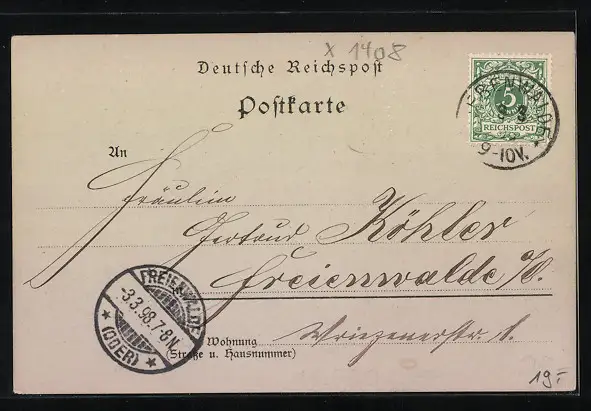 X 1408
Deutsche Reichspost
Postkarte
5
REICHSPOST
EBENWALDE
3 3
9-10V.
An
Fräulein
Gertrud Köhler
Freienwalde a/O.
FREIENWALDE
-3.3.98.7-8N.
* (ODER) *
Wohnung
(Straße u. Hausnummer)
Wriezenerstr. 1.
19.-